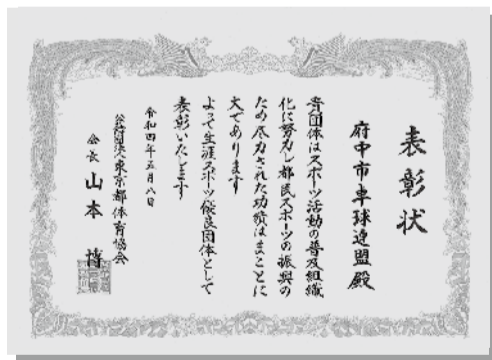 表彰状
府中市卓球連盟殿
貴団体はスポーツ活動の普及組織
化に努力し都民スポーツの振興の
ため尽力された功績はまことに
大であります
よって生涯スポーツ優良団体として
表彰いたします
令和四年五月八日
公益財団法人東京都体育協会
会長 山本 博